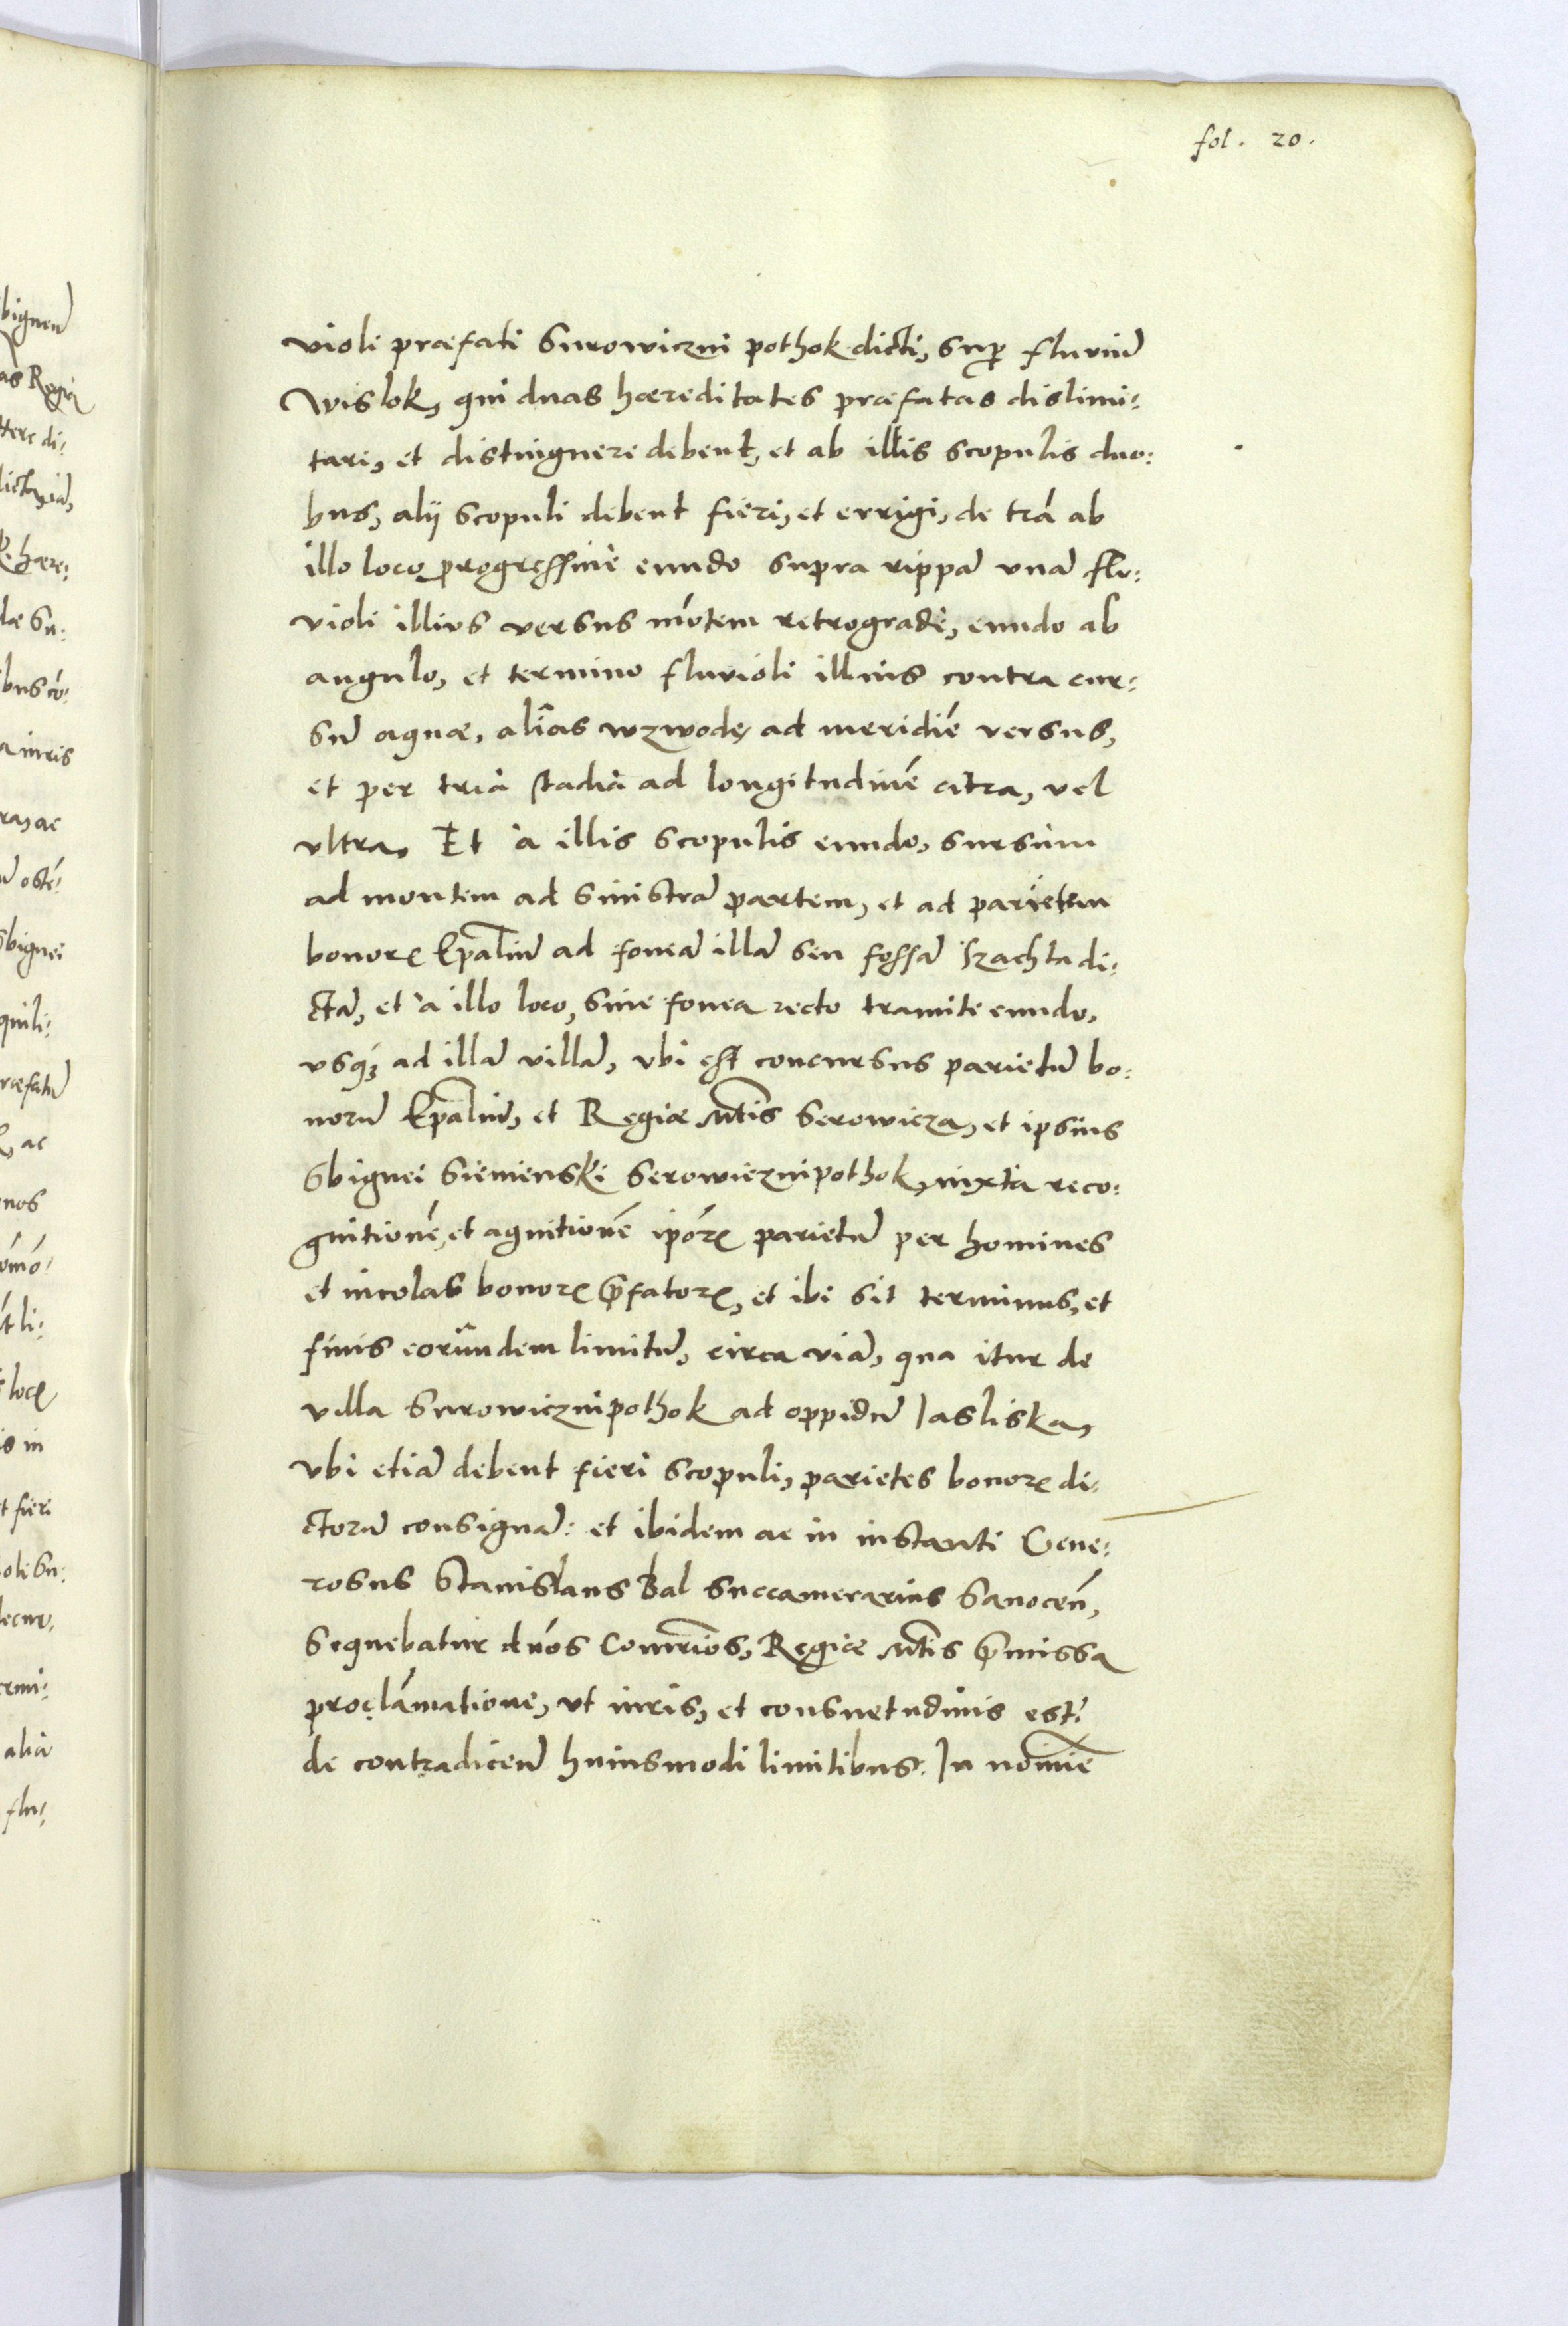 fol. 20.
violi præfati Surowiczni pothok dicti, sup fluviũ
Wislok, qui duas hæreditates præfatas dislimi-
tare, et distinguere debent, et ab illis scopulis duo-
bus, alij scopuli debent fieri, et errigi, de trã ab
illo loco progressivè eundo supra rippã unã flu-
violi illius versus mõtem retrogradè, eundo ab
angulo, et termino fluvioli illius contra cur-
sũ aquæ, aliâs wzwodę ad meridiẽ versus,
et per tria stadia ad longitudinẽ citra, vel
ultra. Et à illis scopulis eundo, sursum
ad montem ad sinistrã partem, et ad parietem
bonorꝝ Epãliũ ad foveã illã seu fossã Szachta di-
ctã, et à illo loco, sine fovea recto tramite eundo,
usqꝫ ad illã villã, ubi est concursus parietũ bo-
norũ Epãliũ, et Regiæ Mtis Serowicza, et ipsius
Sbignei Sienienski Serowicznipothok, iuxta reco-
gnitionẽ, et agnitionẽ ipõrꝝ parietũ per homines
et incolas bonorꝝ p̃fatorꝝ, et ibi sit terminus, et
finis eorundem limitũ, circa viã, qua itur de
villa Surowicznipothok ad oppidũ Jasliska,
ubi etiã debent fieri scopuli, parietes bonorꝝ di-
ctorũ consignañ: et ibidem ac in instanti Gene-
rosus Stanislaus Bal Succamerarius Sanoceñ,
sequebatur dños Comr̃ios, Regiæ Mtis p̃missa
proclamatione, ut iuris, et consuetudinis est:
de contradiceñ huiusmodi limitibus. In nomĩe